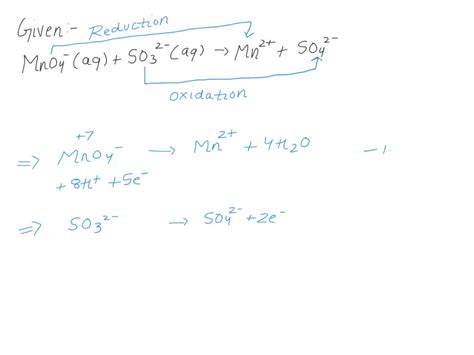 Given:- Reduction
MnO4⁻(aq) + SO3²⁻(aq) → Mn²⁺ + SO4²⁻
Oxidation
+7
=> MnO4⁻ → Mn²⁺ + 4H2O -1.
+8H⁺ +5e⁻
=> SO3²⁻ → SO4²⁻ +2e⁻